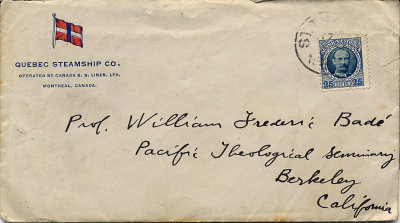 QUEBEC STEAMSHIP CO.
OPERATED BY CANADA S. S. LINES, LTD.
MONTREAL, CANADA.
Prof. William Frederic Badé
Pacific Theological Seminary
Berkeley
California